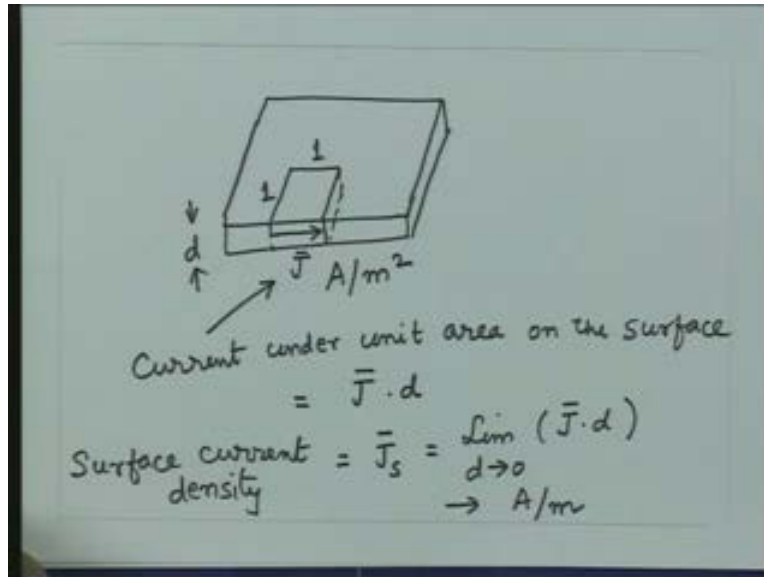 1
1
d
J̄ A/m²
Current under unit area on the surface
= J̄ . d
Surface current = J̄s = Lim (J̄.d)
density d→0
→ A/m